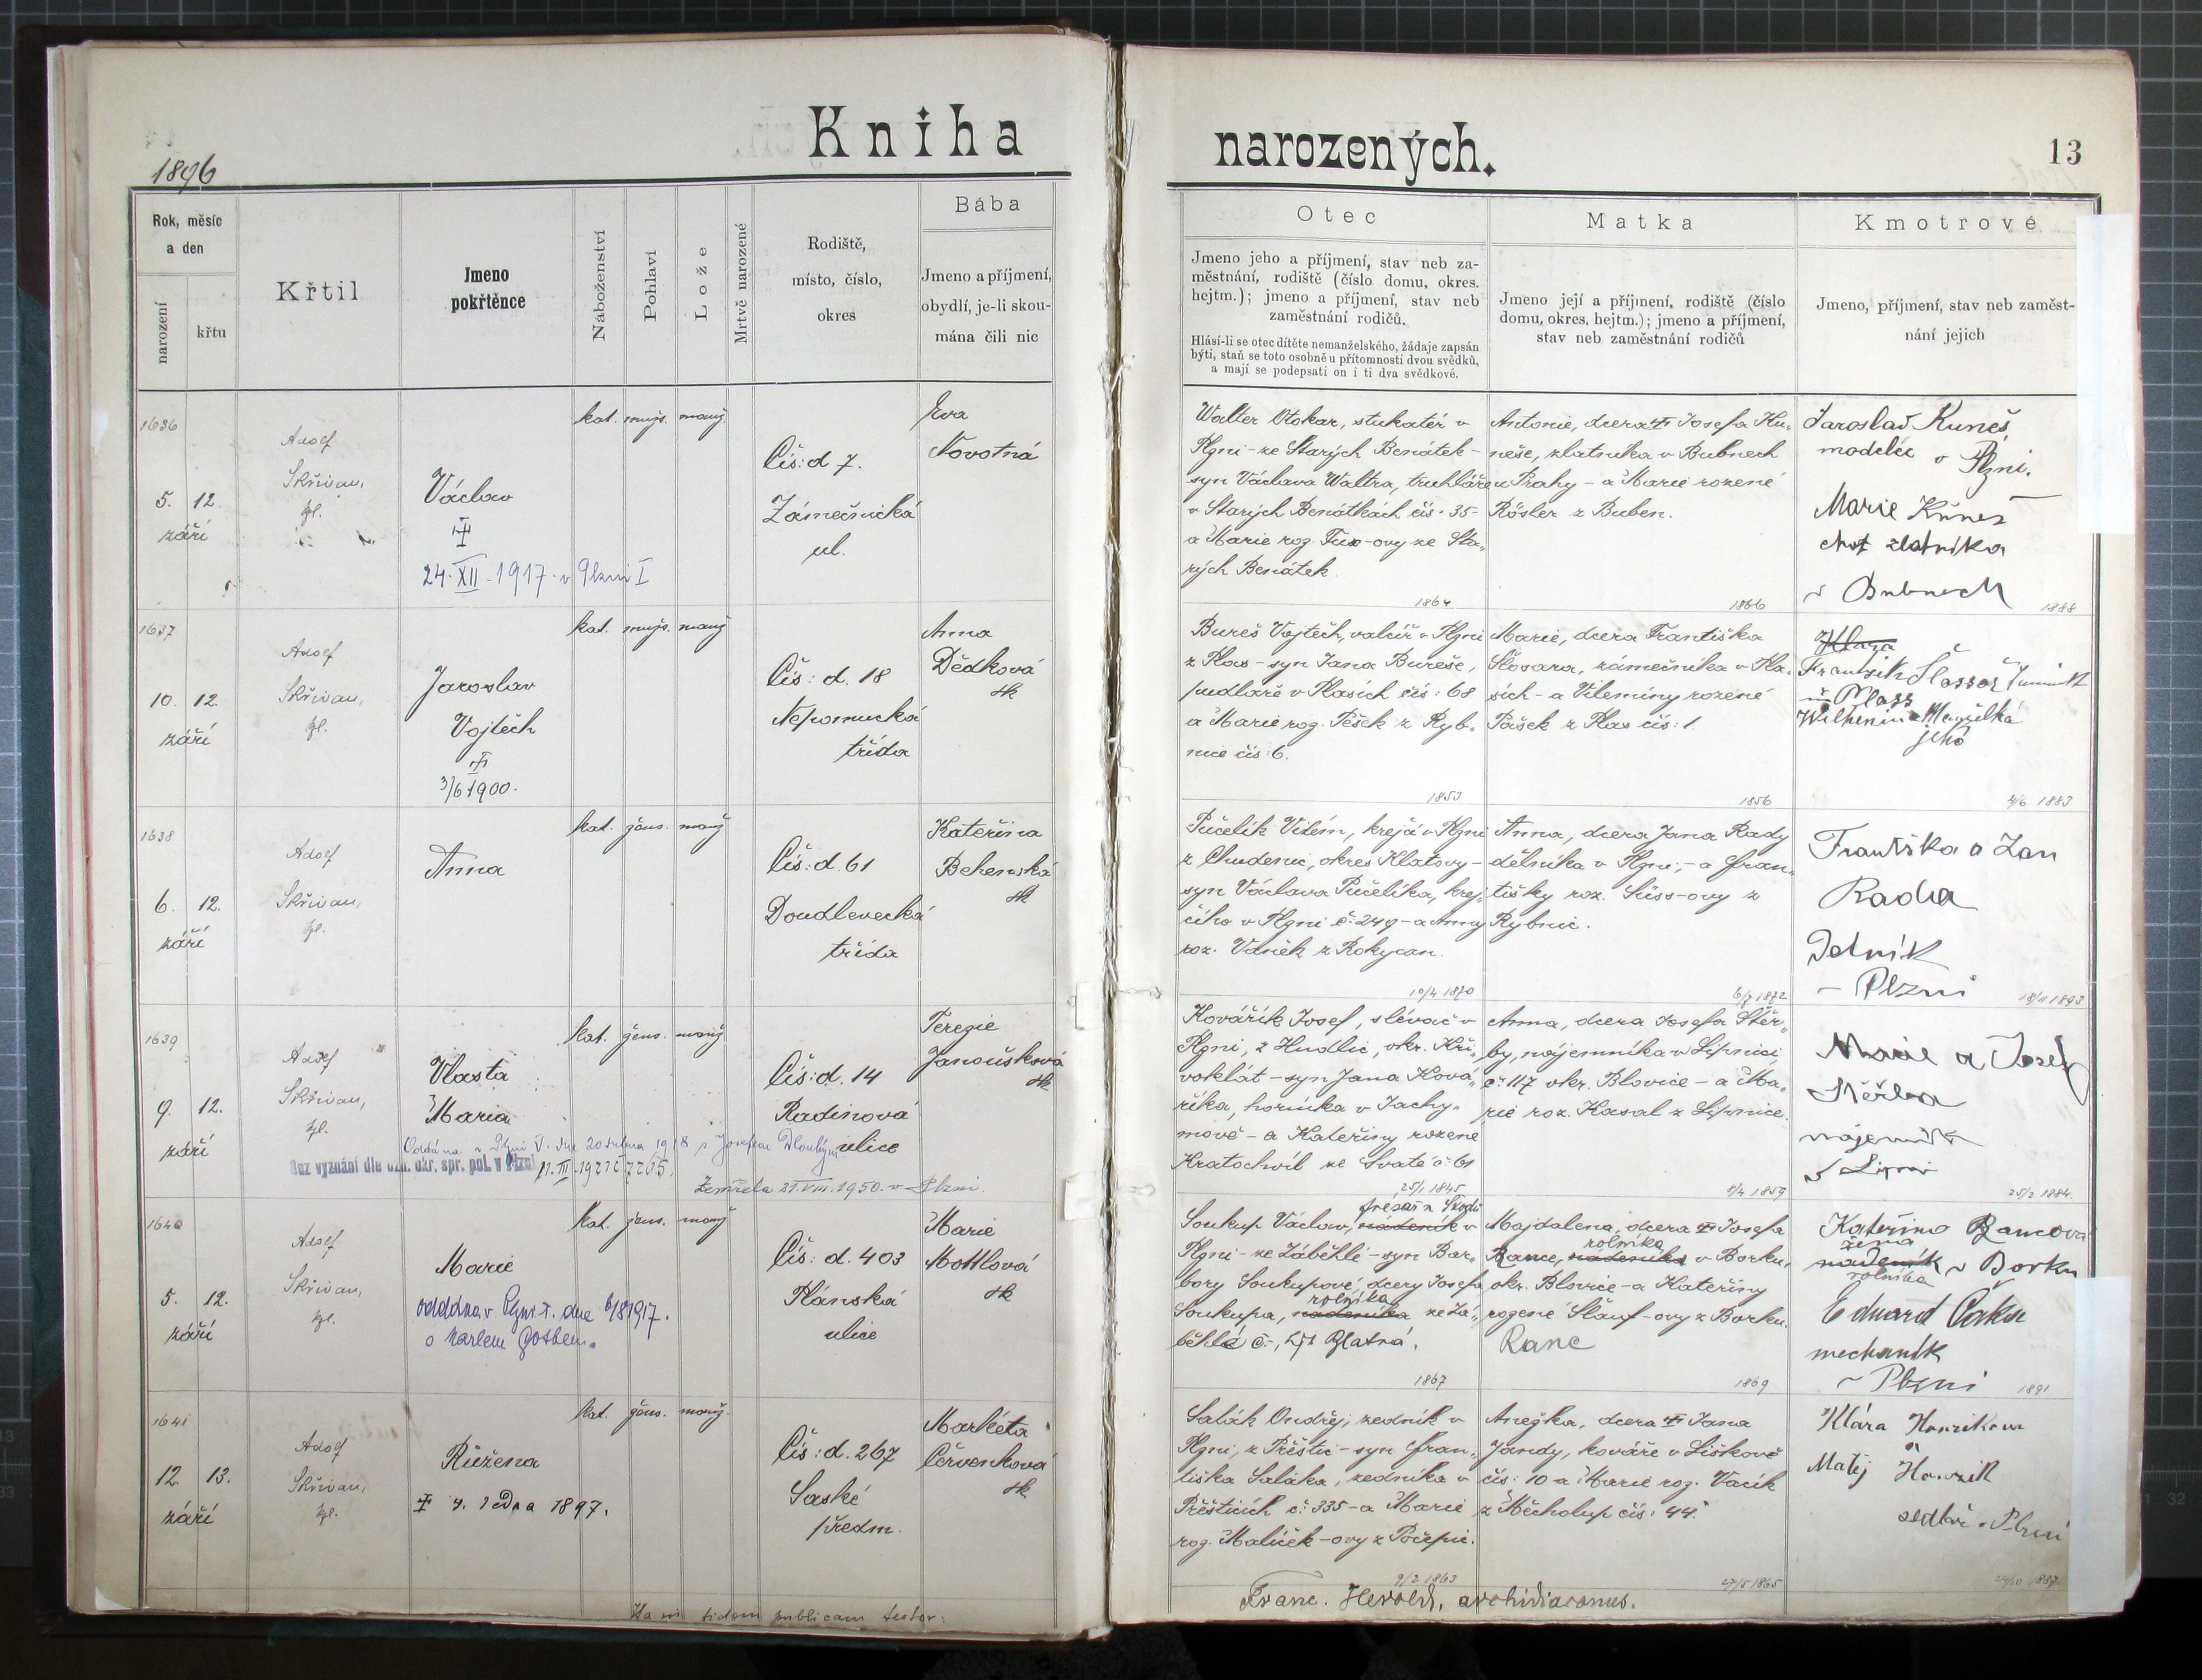 Kniha
narozených.
13
1896
Rok, měsíc
a den
narození
křtu
Křtil
Jmeno
pokřtěnce
Náboženství
Pohlaví
Lože
Mrtvě narozené
Rodiště,
místo, číslo,
okres
Bába
Jmeno a příjmení,
obydlí, je-li skou-
mána čili nic
Otec
Jmeno jeho a příjmení, stav neb za-
městnání, rodiště (číslo domu, okres.
hejtm.); jmeno a příjmení, stav neb
zaměstnání rodičů.
Hlásí-li se otec dítěte nemanželského, žádaje zapsán
býti, staň se toto osobně u přítomnosti dvou svědků,
a mají se podepsati on i ti dva svědkové.
Matka
Jmeno její a příjmení, rodiště (číslo
domu, okres. hejtm.); jmeno a příjmení,
stav neb zaměstnání rodičů
Kmotrové
Jmeno, příjmení, stav neb zaměst-
nání jejich
1636
5. 12.
září
Adolf
Skřivan,
kpl.
Václav
24. XII. 1917. v Plzni I
kat. muž. manž.
Čís: d 7.
Zámečnická
ul.
Eva
Novotná
Walter Otokar, stukatér v
Plzni - ze Starých Benátek -
syn Václava Waltra, truhláře
v Starých Benátkách čís. 35-
a Marie roz. Fux-ovy ze Sta-
rých Benátek
1864
Antonie, dcera Josefa Ku-
neše, zlatníka v Bubnech
u Prahy - a Marie rozené
Rösler z Buben.
1866
Jaroslav Kuneš
modeléř v Plzni.
Marie Kuneš
choť zlatníka
v Bubnech
1888
1637
10. 12.
září
Adolf
Skřivan,
kpl.
Jaroslav
Vojtěch
3/6 1900.
kat. muž. manž
Čís: d. 18
Nepomucká
třída
Anna
Dědková
zk
Bureš Vojtěch, valcíř v Plzni
z Plas - syn Jana Bureše,
pudláře v Plasích čís: 68
a Marie roz. Pešek z Ryb-
nice čís: 6.
1853
Marie, dcera Františka
Šlosara, zámečníka v Pla-
sích - a Vilemíny rozené
Pašek z Plas čís: 1.
1856
František Šlossar
v Plass
Wilhemina Manželka
jeho
4/6 1883
1638
6. 12.
září
Adolf
Skřivan,
kpl.
Anna
kat. žens. manž
Čís: d. 61
Doudlevecká
třída
Kateřina
Behenská
zk
Pučelík Vilém, krejčí v Plzni
z Chudenic, okres Klatovy -
syn Václava Pučelíka, krej-
čího v Plzni č: 249 - a Anny
roz. Vaněk z Rokycan.
10/4 1870
Anna, dcera Jana Rady
dělníka v Plzni, - a Fran-
tišky roz. Süss-ovy z
Rybnic.
6/7 1872
Františka a Jan
Rada
Dělník
v Plzni
18/11 1893
1639
9. 12.
září
Adolf
Skřivan,
kpl.
Vlasta
Maria
kat. žens. manž
Čís: d. 14
Radinová
ulice
Terezie
Janoušková
zk
Oddána v Plzni I. dne 20 dubna 1918 s Josefem Dlouhým
Bez vyznání dle ozn. okr. spr. pol. v Plzni 11. III. 1921 č. 7265.
Zemřela 21. VIII. 1950. v Plzni.
Kovářík Josef, slévač v
Plzni, z Hudlic, okr. Kři-
voklát - syn Jana Ková-
říka, horníka v Jachy-
mově - a Kateřiny rozené
Kratochvíl ze Svaté č: 61
25/1 1845
Anna, dcera Josefa Štěr-
by, nájemníka v Lipnici
č: 117 okr. Blovice - a Ma-
rie roz. Kasal z Lipnice.
8/4 1859
Marie a Josef
Štěrba
nájemník
v Lipnici
25/2 1884.
1640
5. 12.
září
Adolf
Skřivan,
kpl.
Marie
oddána v Plzni I. dne 6/8 1917.
s Karlem Gotben.
kat. žens. manž
Čís: d. 403
Plánská
ulice
Marie
Mottlová
zk
Soukup Václav, nádeník v
Plzni - ze Záběhlé - syn Bar-
bory Soukupové, dcery Josefa
rolníka
Soukupa, nádeníka ze Zá-
běhlé č. 47 Blatná.
1867
Majdalena, dcera Josefa
rolníka
Rance, nádeníka v Borku,
okr. Blovice - a Kateřiny
rozené Šlauf-ovy z Borku.
Ranc
1869
Kateřina Rancová
žena
nádeník v Borku
rolníka
Eduard Čáka
mechanik
v Plzni
1891
1641
12. 13.
září
Adolf
Skřivan,
kpl.
Růžena
4. ledna 1897.
kat. žens. manž.
Čís: d. 267
Saské
předm.
Markéta
Červenková
zk
Salák Ondřej, zedník v
Plzni, z Přeštic - syn Fran-
tiška Saláka, zedníka v
Přešticích č: 335 - a Marie
roz. Malíček-ovy z Počepic.
9/2 1863
Anežka, dcera Jana
Jandy, kováře v Liškově
čís: 10 a Marie roz. Vacík
z Měcholup čís: 44.
27/5 1865
Klára Hanzikova
Matěj Hanzik
sedlář v Plzni
24/10 1887.
Hanc fidem publicam testor:
Franc. Herold, archidiaconus.